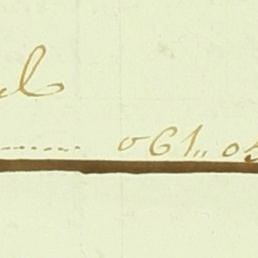 el
061,, 05